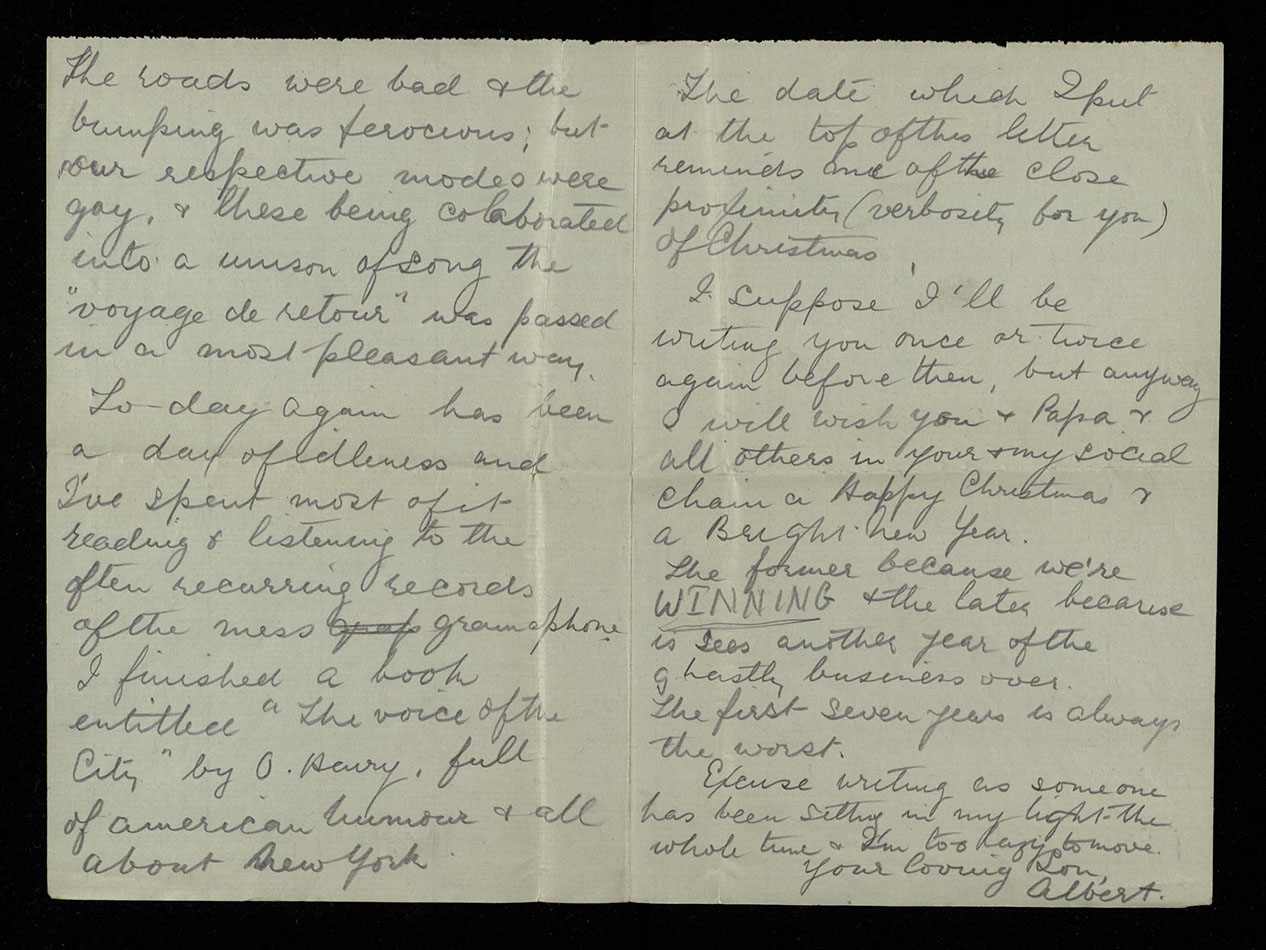 The roads were bad & the
bumping was ferocious; but
our respective modes were
gay, & these being colaborated
into a unison of song the
"voyage de retour" was passed
in a most pleasant way.
To-day again has been
a day of idleness and
I've spent most of it
reading & listening to the
often recurring records
of the mess gramaphone
I finished a book
entitled "The voice of the
City" by O. Henry, full
of american humour & all
about New York
The date which I put
at the top of this letter
reminds me of the close
proximity (verbosity for you)
of Christmas
I suppose I'll be
writing you once or twice
again before then, but anyway
I will wish you & Papa &
all others in your & my social
chain a Happy Christmas &
a Bright New Year.
The former because we're
WINNING & the later because
is sees another year of the
ghastly business over.
The first seven years is always
the worst.
Excuse writing as someone
has been sitting in my light the
whole time & I'm too lazy to move.
Your loving Son,
Albert.